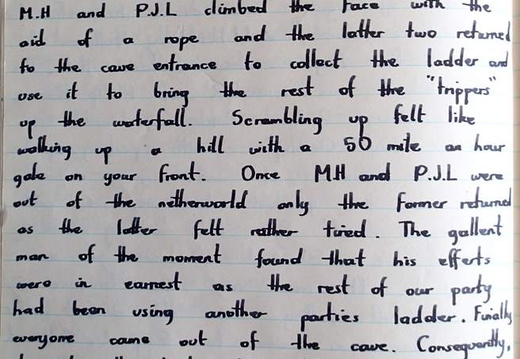 M.H and P.J.L climbed the face with the
aid of a rope and the latter two returned
to the cave entrance to collect the ladder and
use it to bring the rest of the "trippers"
up the waterfall. Scrambling up felt like
walking up a hill with a 50 mile an hour
gale on your front. Once M.H and P.J.L were
out of the netherworld only the former returned
as the latter felt rather tired. The gallent
man of the moment found that his efforts
were in earnest as the rest of our party
had been using another parties ladder. Finally
everyone came out of the cave. Consequently,